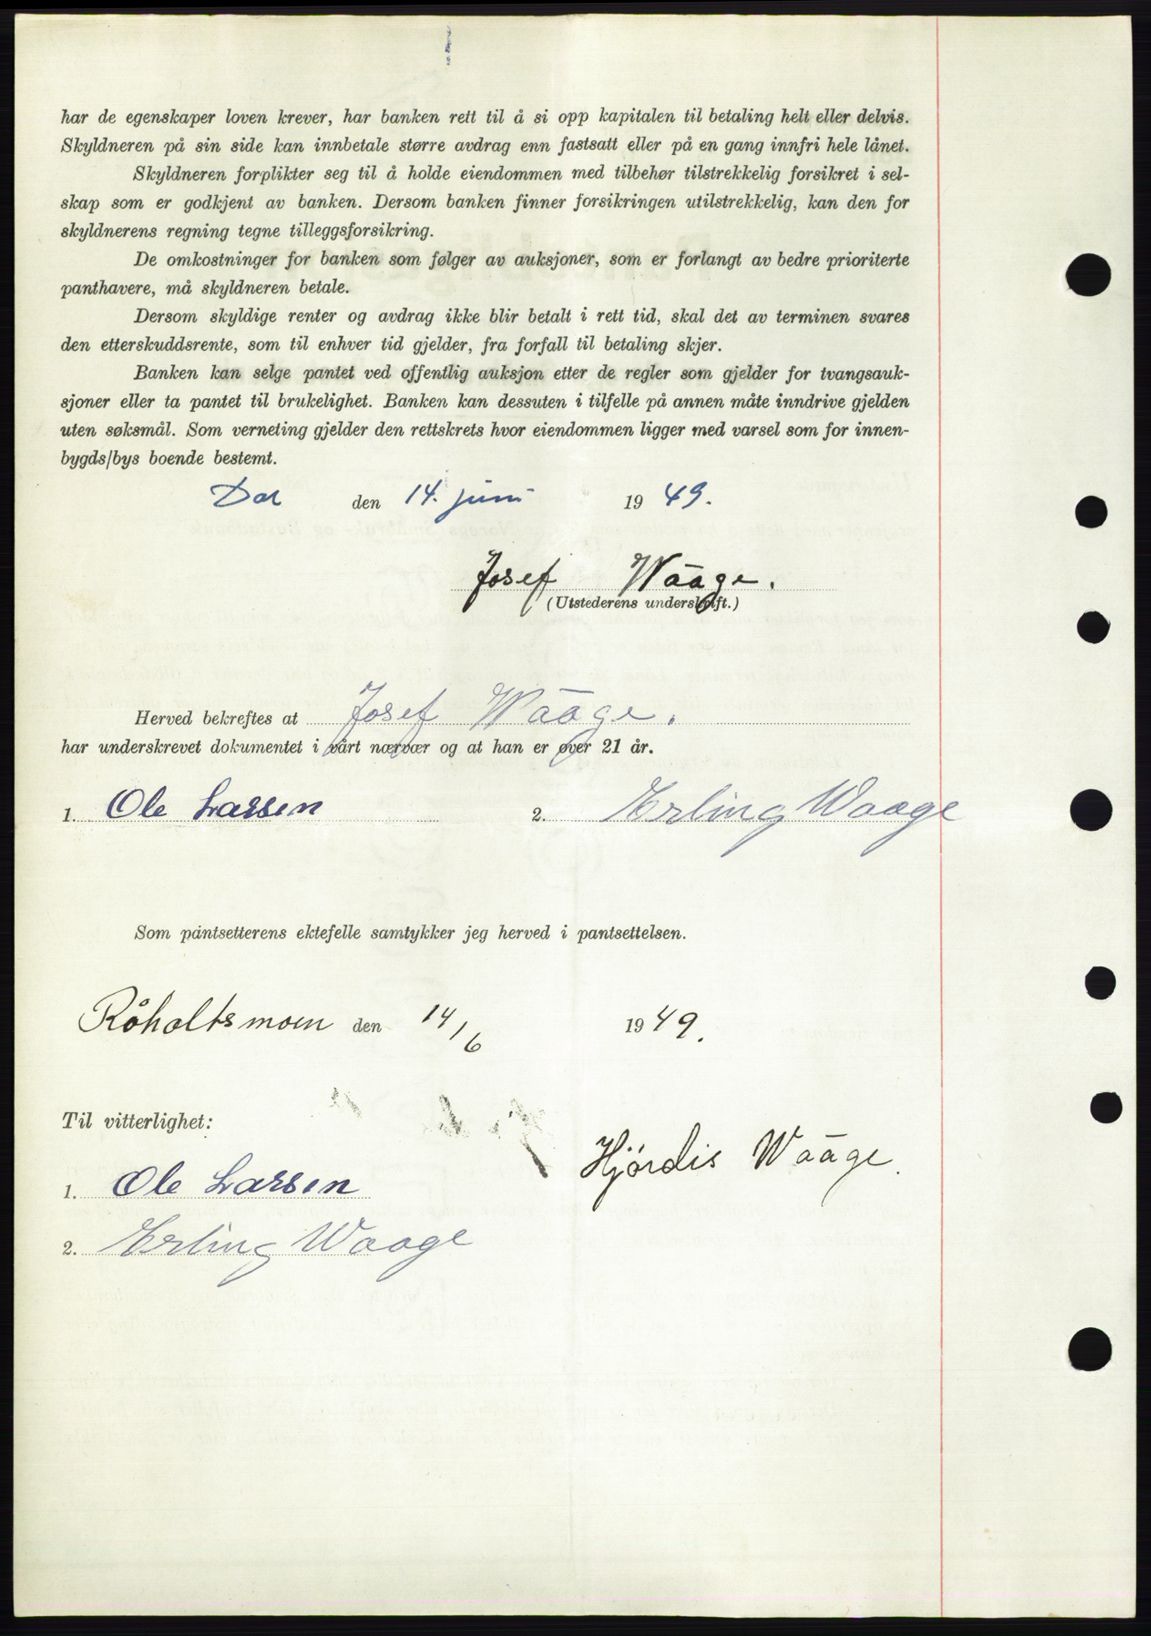 har de egenskaper loven krever, har banken rett til å si opp kapitalen til betaling helt eller delvis.
Skyldneren på sin side kan innbetale større avdrag enn fastsatt eller på en gang innfri hele lånet.
Skyldneren forplikter seg til å holde eiendommen med tilbehør tilstrekkelig forsikret i sel-
skap som er godkjent av banken. Dersom banken finner forsikringen utilstrekkelig, kan den for
skyldnerens regning tegne tilleggsforsikring.
De omkostninger for banken som følger av auksjoner, som er forlangt av bedre prioriterte
panthavere, må skyldneren betale.
Dersom skyldige renter og avdrag ikke blir betalt i rett tid, skal det av terminen svares
den etterskuddsrente, som til enhver tid gjelder, fra forfall til betaling skjer.
Banken kan selge pantet ved offentlig auksjon etter de regler som gjelder for tvangsauk-
sjoner eller ta pantet til brukelighet. Banken kan dessuten i tilfelle på annen måte inndrive gjelden
uten søksmål. Som verneting gjelder den rettskrets hvor eiendommen ligger med varsel som for innen-
bygds/bys boende bestemt.
Dal den 14. juni 1949.
Josef Waage.
(Utstederens underskrift.)
Herved bekreftes at Josef Waage.
har underskrevet dokumentet i vårt nærvær og at han er over 21 år.
1. Ole Larsen 2. Erling Waage
Som pantsetterens ektefelle samtykker jeg herved i pantsettelsen.
Råholtsmoen den 14/6 1949.
Til vitterlighet:
Hjördis Waage.
1. Ole Larsen
2. Erling Waage